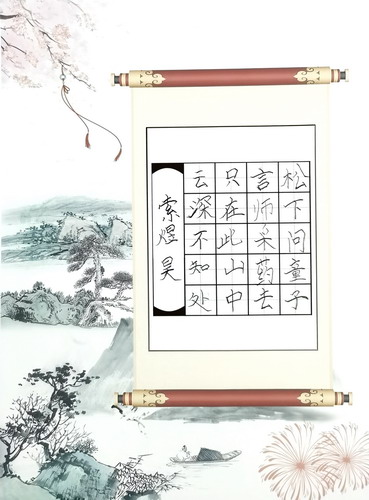 松下问童子
言师采药去
只在此山中
云深不知处
索煜昊